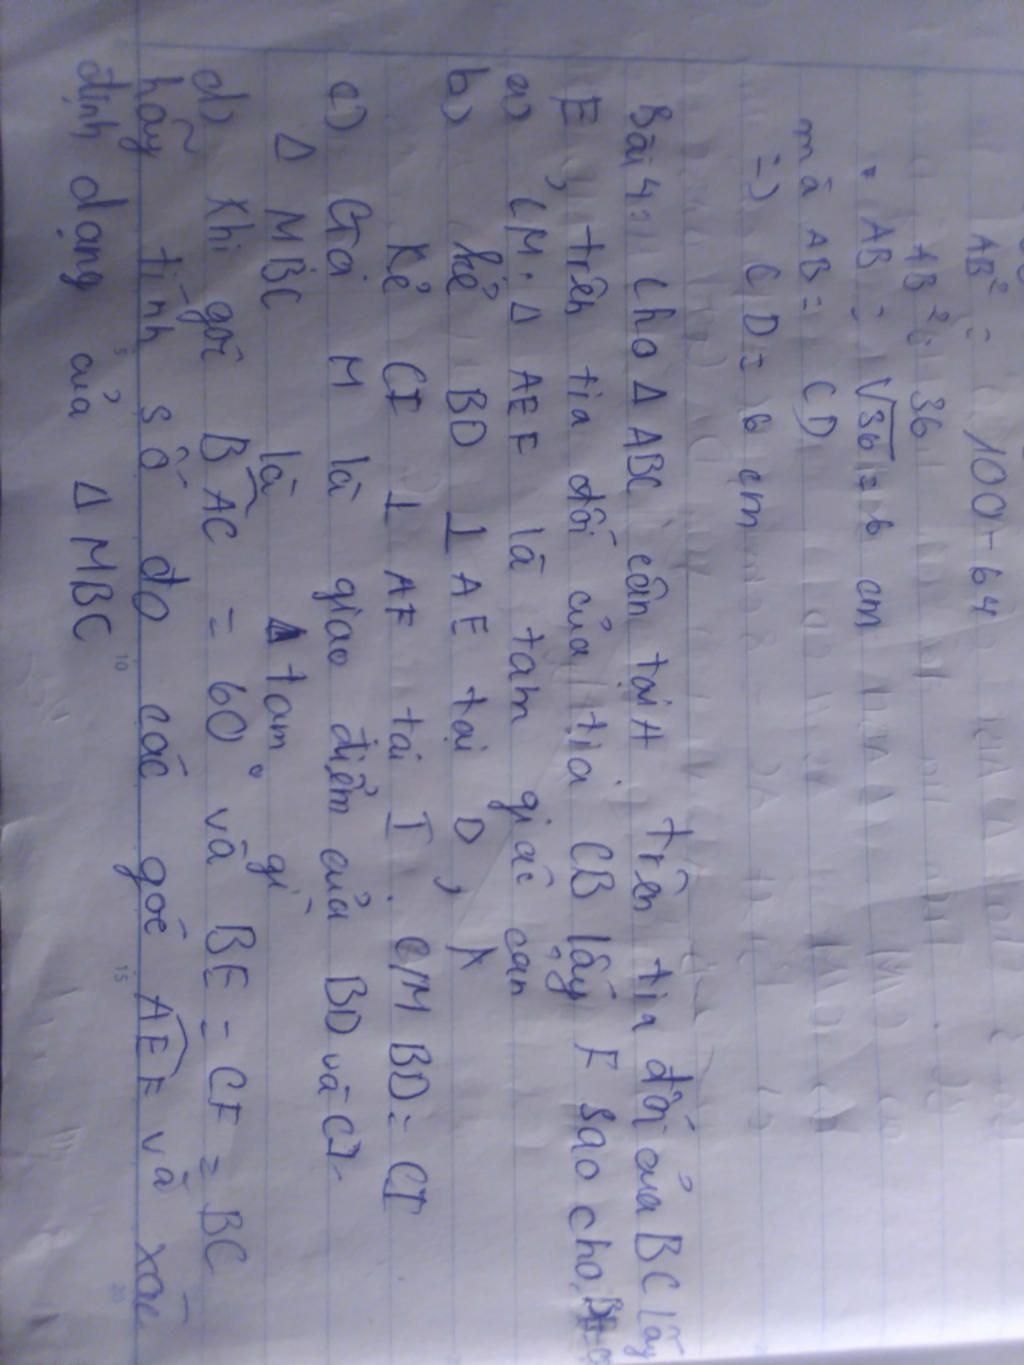 AB² = 100-64
AB² = 36
AB = √36 = 6 cm
mà AB = CD
=) CD = 6 cm
Bài 4: Cho Δ ABC cân tại A trên tia đối của BC lấy
E, trên tia đối của tia CB lấy F sao cho
a) CM. Δ AEF là tam giác can
b) kẻ BD ⊥ AE tại D,
Kẻ CI ⊥ AF tại I. C/M BD = CI
c) Gọi M là giao điểm của BD và CI.
Δ MBC là tam gì
d) Khi góc BAC = 60° và BE = CF = BC
hãy tính số đo các góc AEF và xác
định dạng của Δ MBC